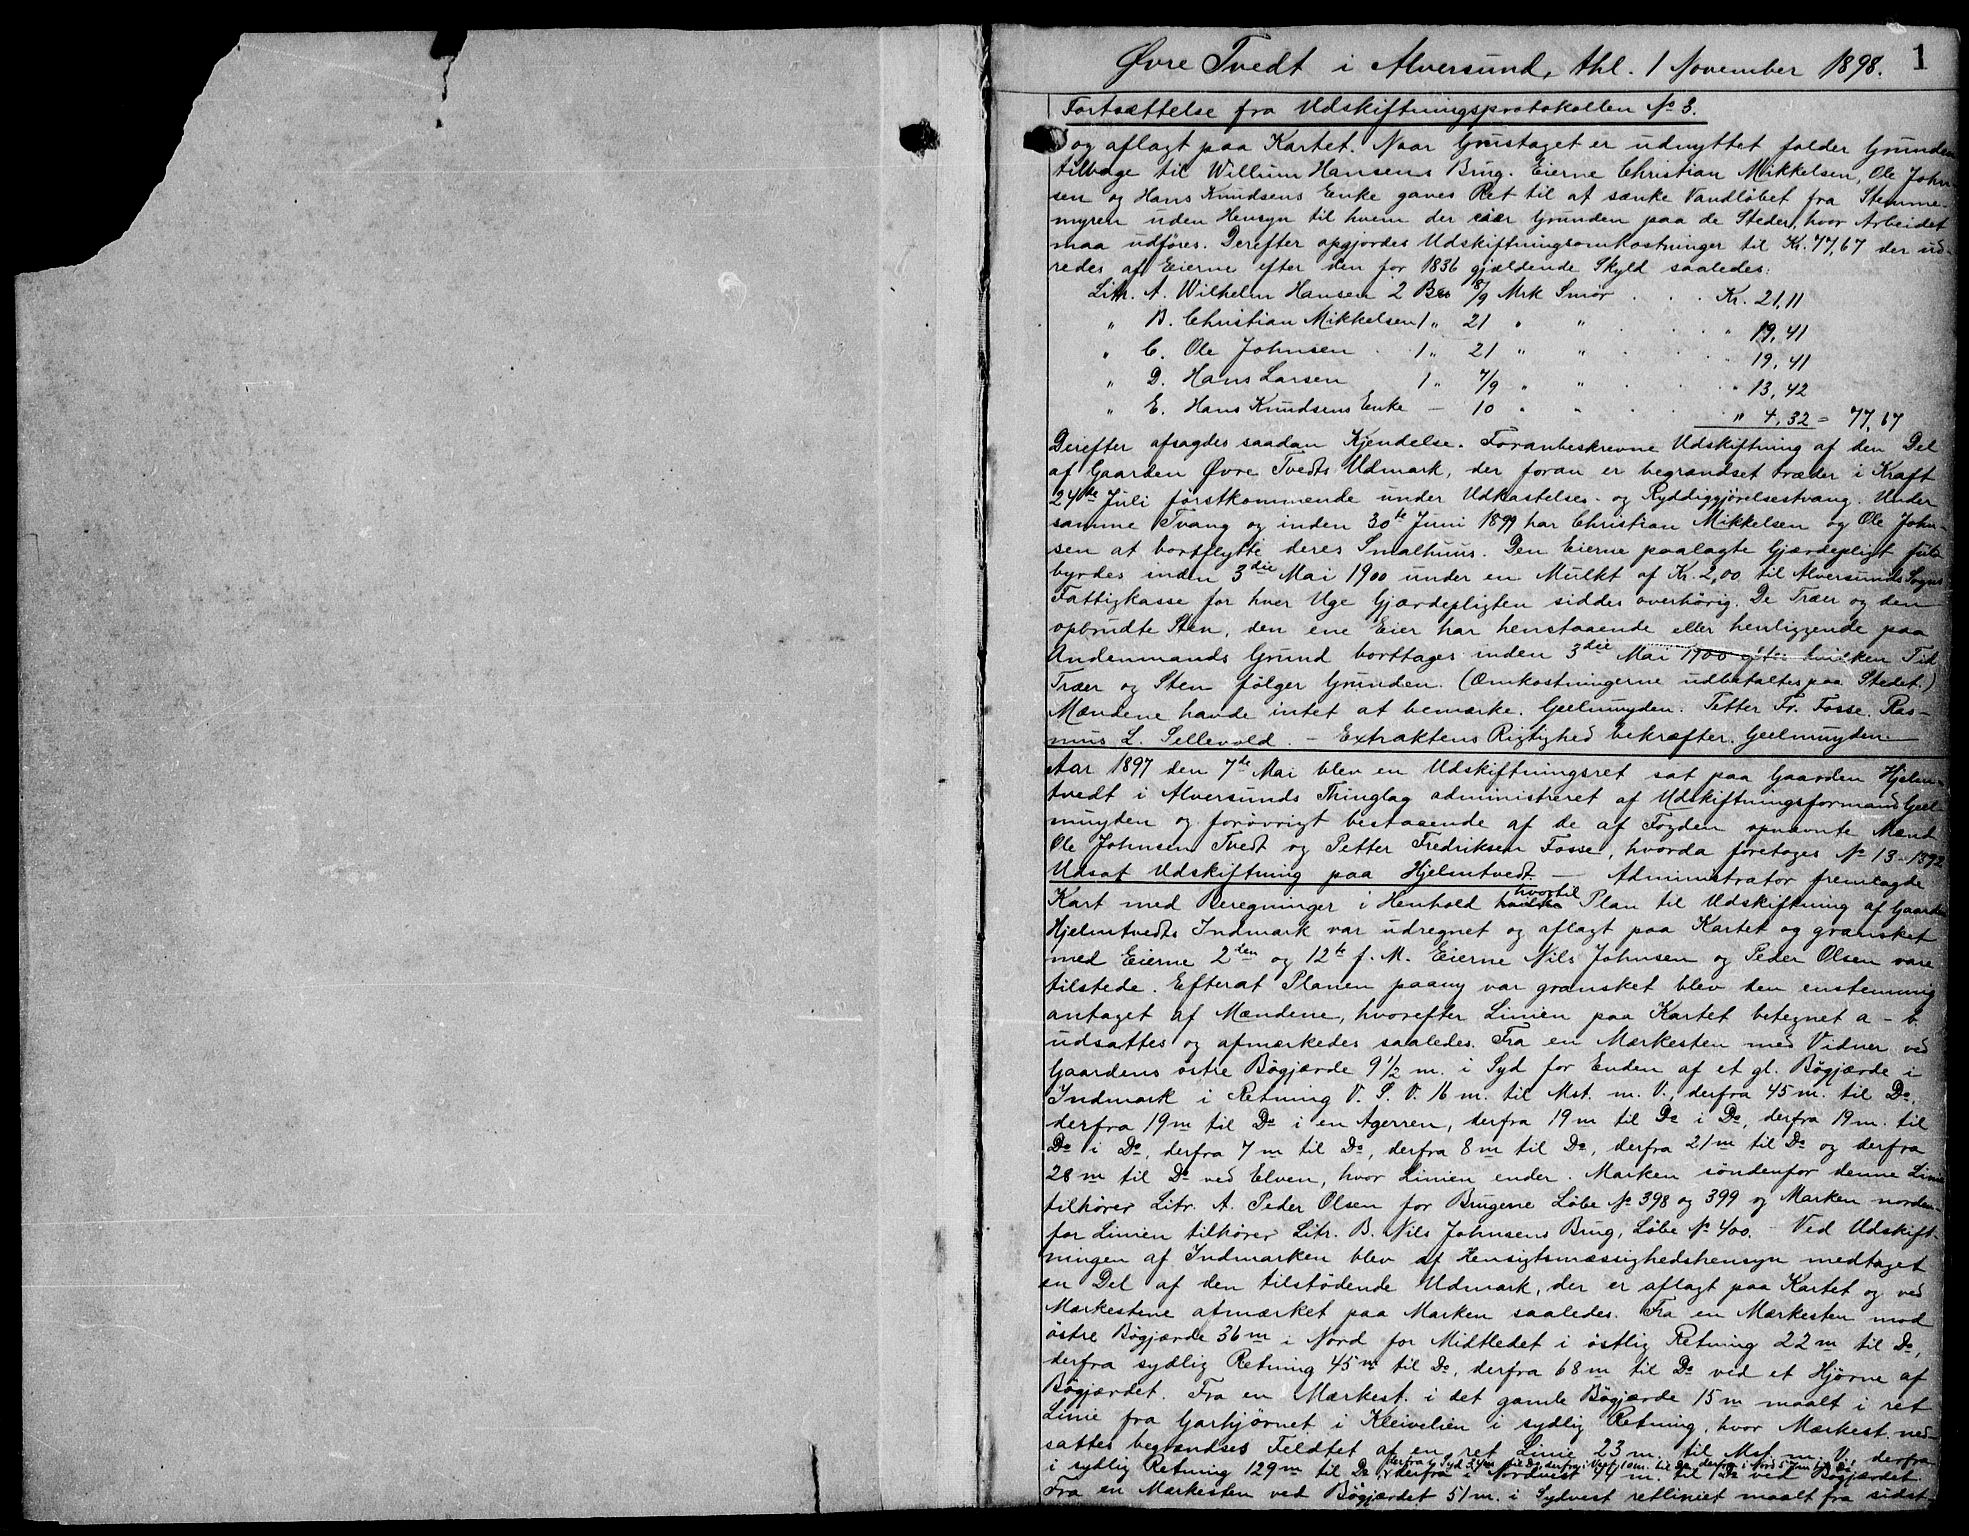 Øvre Tvedt i Alversund, thl. 1 November 1898. 1
Fortsættelse fra Udskiftningsprotokollen No 3.
og aflagt paa Kartet. Naar Grustaget er udnyttet falder Grunden
tilbage til Willum Hansens Brug. Eierne Christian Mikkelsen, Ole John-
sen og Hans Knudsens Enke gaves Ret til at sænke Vandløbet fra Stemme-
myren uden Hensyn til hvem der eier Grunden paa de Steder, hvor Arbeidet
maa udføres. Derefter opgjordes Udskiftningsomkostninger til Kr. 77,67 der ud-
redes af Eierne efter den for 1836 gjældende Skyld saaledes:
Litr. A. Wilhelm Hansen 2 8/9 Mrk Smør . . . Kr. 21,11
" B. Christian Mikkelsen 1 " 21 " " . . " 19,41
" C. Ole Johnsen . 1 " 21 " " . . " 19,41
" D. Hans Larsen 1 " 7/9 " " . . " 13,42
" E. Hans Knudsens Enke – 10 " " . . " 4,32 = 77,67
Derefter afsagdes saadan Kjendelse. Foranbeskrevne Udskiftning af den Del
af Gaarden Øvre Tvedts Udmark, der foran er begrændset træder i Kraft
24de Juli førstkommende under Udkastelses- og Ryddiggjørelsestvang. Under
samme Tvang og inden 30te Juni 1899 har Christian Mikkelsen og Ole John-
sen at bortflytte deres Smalhuus. Den Eierne paalagte Gjærdepligt fuld-
byrdes inden 3die Mai 1900 under en Mulkt af Kr. 2,00 til Alversunds Sogns
Fattigkasse for hver Uge Gjærdepligten siddes overhørig. De Træer og den
opbrudte Sten, den ene Eier har henstaaende eller henliggende paa
Andenmands Grund borttages inden 3die Mai 1900 efter hvilken Tid
Træer og Sten følger Grunden. (Omkostningerne udbetaltes paa Stedet.)
Mændene havde intet at bemærke. Geelmuyden. Petter Fr. Fosse. Ras-
mus L. Sellevold. – Extraktens Rigtighed bekræfter. Geelmuyden
Aar 1897 den 7de Mai blev en Udskiftningsret sat paa Gaarden Hjelm-
tvedt i Alversunds Thinglag administreret af Udskiftningsformand Geel-
muyden og forøvrigt bestaaende af de af Fogden opnævnte Mænd
Ole Johnsen Tvedt og Petter Fredriksen Fosse, hvorda foretoges No 13-1892
Udsat Udskiftning paa Hjelmtvedt. – Administrator fremlagde
Kart med Beregninger i Henhold hvortil Plan til Udskiftning af Gaarden
Hjelmtvedts Indmark var udregnet og aflagt paa Kartet og gransket
med Eierne 2den og 12te f. M. Eierne Nils Johnsen og Peder Olsen vare
tilstede. Efterat Planen paany var gransket blev den enstemmig
antaget af Mændene, hvorefter Linien paa Kartet betegnet a - b
udsattes og afmærkedes saaledes. Fra en Mærkesten med Vidner ved
Gaardens østre Bøgjærde 9 1/2 m. i Syd for Enden af et gl. Bøgjærde i
Indmark i Retning V. S. V. 16 m. til Mst. m. V., derfra 45 m. til Do,
derfra 19 m til Do i en Agerren, derfra 19 m til Do i Do, derfra 19 m. til
Do i Do, derfra 7 m til Do, derfra 8 m til Do, derfra 21 m til Do og derfra
28 m til Do ved Elven, hvor Linien ender. Marken søndenfor denne Linie
tilhører Litr. A. Peder Olsen for Brugene Løbe No 398 og 399 og Marken norden-
for Linien tilhører Litr. B. Nils Johnsens Brug, Løbe No 400. – Ved Udskift-
ningen af Indmarken blev af Hensigtsmæssighedshensyn medtaget
en Del af den tilstødende Udmark, der er aflagt paa Kartet og ved
Mærkestene afmærket paa Marken saaledes. Fra en Mærkesten mod
østre Bøgjærde 36 m i Nord for Midtledet i østlig Retning 22 m til Do,
derfra sydlig Retning 45 m til Do, derfra 68 m til Do ved et Hjørne af
Bøgjærdet. Fra en Mærkest. i det gamle Bøgjærde 15 m maalt i ret
Linie fra Garhjørnet i Kleivelien i sydlig Retning, hvor Mærkest. ned-
sattes begrændses Feldtet af en ret Linie 23 m. til Mst. m. V., derfra
derfra i Syd 34 m til Do, derfra i Vest 10 m. til Do, derfra i Nord 57 m til Do
i sydlig Retning 129 m til Do, derfra i Nordvest 44 m. til Do ved Bøgjærdet.
Fra en Mærkesten ved Bøgjærdet 51 m. i Sydvest retliniet maalt fra sidst-